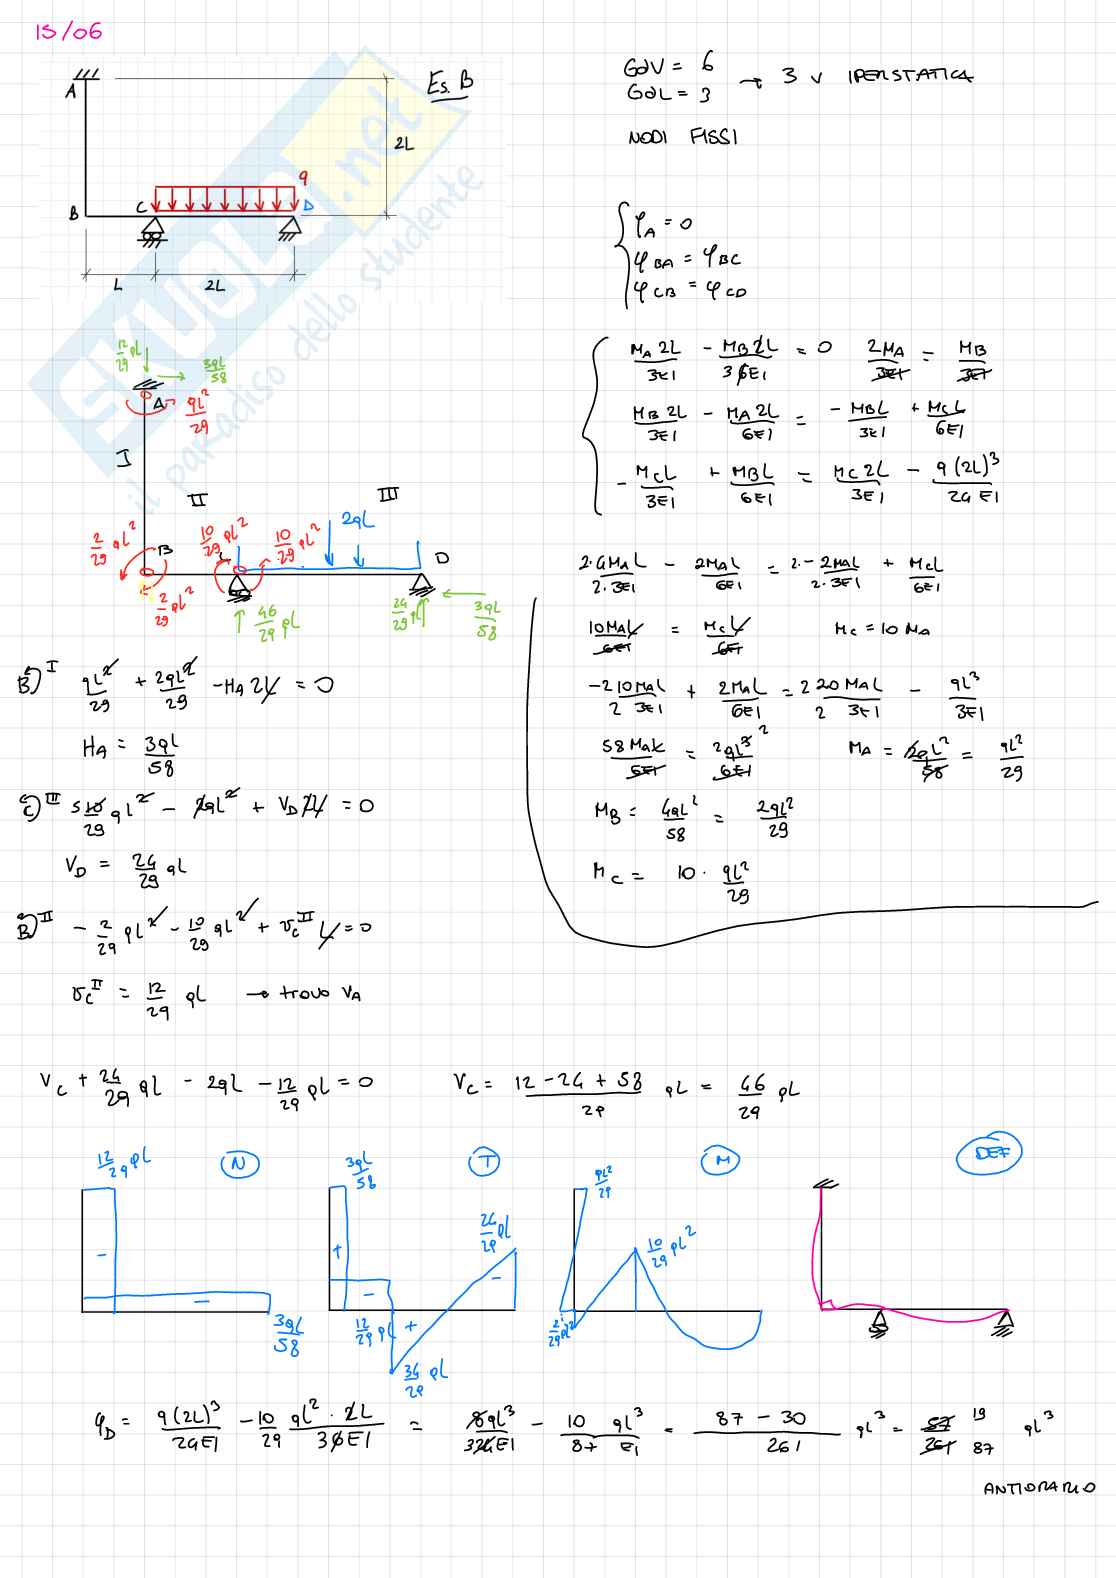 15/06
Es. B
A
2L
q
B C D
L 2L
GdV = 6
GdL = 3 → 3 v IPERSTATICA
NODI FISSI
φA = 0
φBA = φBC
φCB = φCD
MA 2L/3EI - MB 2L/6EI = 0 2MA/3EI = MB/3EI
MB 2L/3EI - MA 2L/6EI = - MBL/3EI + MCL/6EI
- MCL/3EI + MBL/6EI = MC 2L/3EI - q(2L)³/24EI
2·4MAL/2·3EI - 2MAL/6EI = 2·-2MAL/2·3EI + MCL/6EI
10MAL/6EI = MCL/6EI MC = 10MA
-2 10MAL/2 3EI + 2MAL/6EI = 2 20MAL/2 3EI - qL³/3EI
58MAL/6EI = 2qL³/6EI MA = 2qL²/58 = qL²/29
MB = 4qL²/58 = 2qL²/29
MC = 10 · qL²/29
12/29 qL
3qL/58
A qL²/29
I
II
III
2qL
2/29 qL² B 10/29 qL² C 10/29 qL² D
2/29 qL²
46/29 qL
24/29 qL
3qL/58
B)I qL²/29 + 2qL²/29 - HA 2L = 0
HA = 3qL/58
C)III 5 10/29 qL² - 2qL² + VD 2L = 0
VD = 24/29 qL
B)II - 2/29 qL² - 10/29 qL² + vCII L = 0
vCII = 12/29 qL → trovo VA
VC + 24/29 qL - 2qL - 12/29 qL = 0 VC = 12 - 24 + 58/29 qL = 46/29 qL
12/29 qL N
-
-
3qL/58
3qL/58 T
24/29 qL
+
-
-
12/29 qL +
34/29 qL
qL²/29 M
10/29 qL²
2/29 qL²
DEF
φD = q(2L)³/24EI - 10/29 qL² · 2L/36EI = 8qL³/324EI - 10/87 qL³/EI = 87 - 30/261 qL³ = 57/261 19/87 qL³
ANTIORARIO
SKUOLA.net
il paradiso dello studente